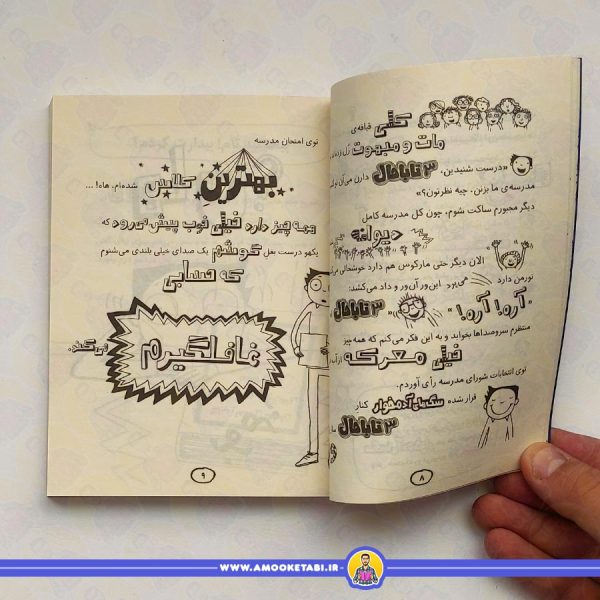 کلی قیافه‌ی
مات و مبهوت زل زده‌ا
«درست شنیدین.
۳ تا باحال
دارن می‌آن تو
مدرسه‌ی ما بزنن. چیه نظرتون؟»
دیگر مجبورم ساکت شوم، چون کل مدرسه کامل
دیوانه
الان دیگر حتی مارکوس هم دارد خوشحالی
نورمن دارد
می‌پرد این‌ور آن‌ور و داد می‌کشد:
«آره! آره!
۳ تا باحال
منتظرم سروصداها بخوابد و به این فکر می‌کنم که همه‌چیز
خیلی معرکه
از آ
توی انتخابات شورای مدرسه رأی آوردم.
قرار شده
سگ‌های آدمخوار
کنار
۳ تا باحال
۸
توی امتحان مدرسه
بهترین
کلاس
شده‌ام. هاه! ...
همه چیز دارد خیلی خوب پیش می‌رود
که
یکهو درست بغل
گوشم
یک صدای خیلی بلندی می‌شنوم
که حسابی
غافلگیرم
می‌کند.
۹
WWW.AMOOKETABI.IR